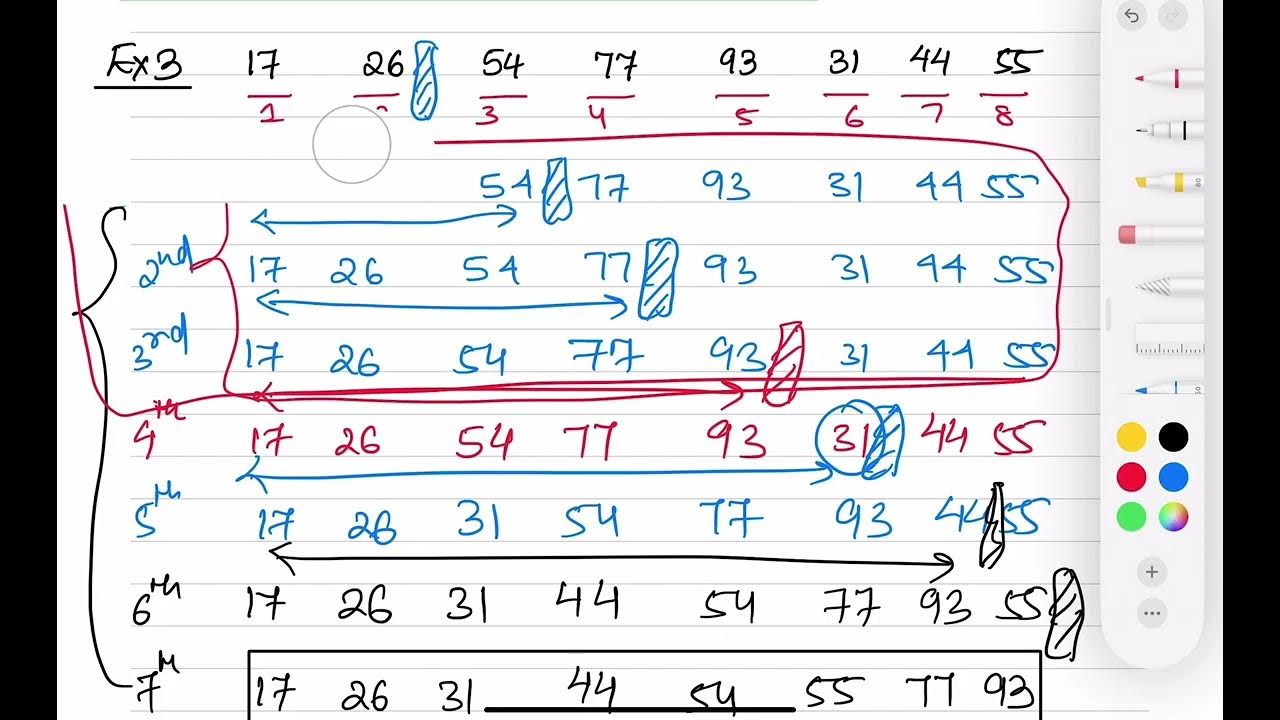 Ex 3 17 26 54 77 93 31 44 55
1 3 4 5 6 7 8
54 77 93 31 44 55
2nd 17 26 54 77 93 31 44 55
3rd 17 26 54 77 93 31 44 55
4th 17 26 54 77 93 31 44 55
5th 17 26 31 54 77 93 44 55
6th 17 26 31 44 54 77 93 55
7th 17 26 31 44 54 55 77 93